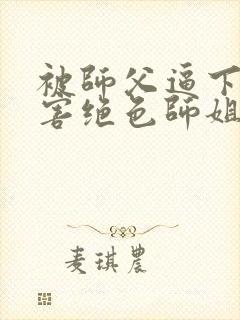 被師父逼下
害绝色師姐
麦琪農